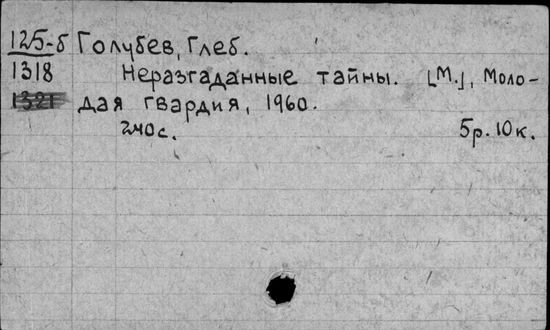 125-б Голубев, Глеб.
1318 Неразгаданные тайны. [М.], Моло-
1321 дая гвардия, 1960.
240с. 5р. 10к.